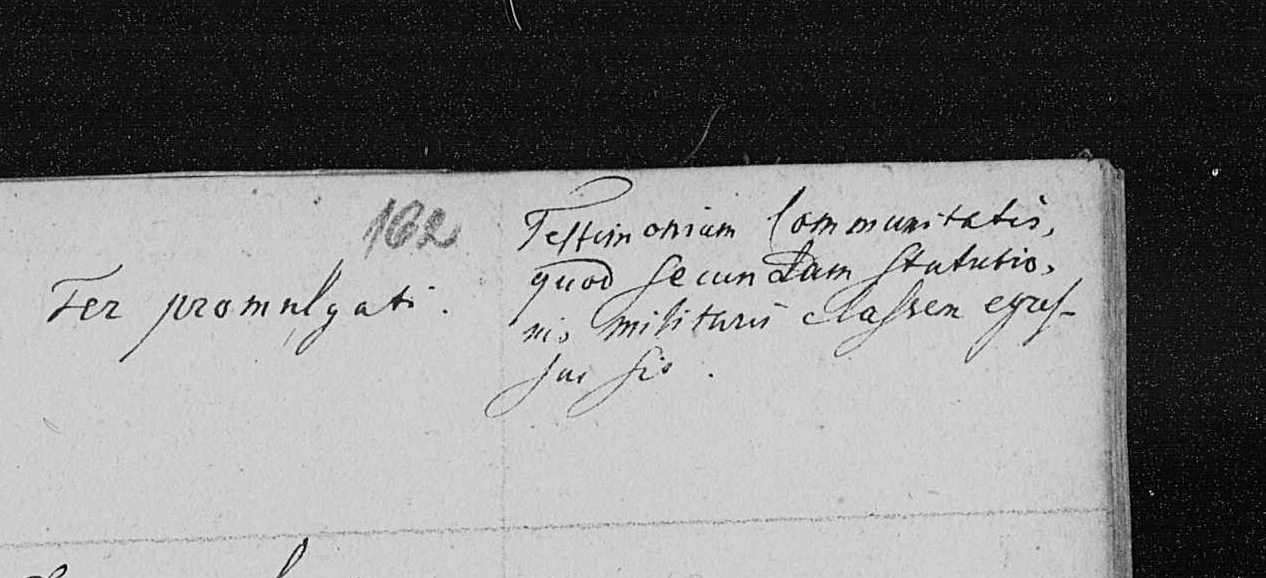 162
Ter promulgati.
Testimonium Communitatis,
quod secundam statutio,
nis militaris classen egres-
sus sit.